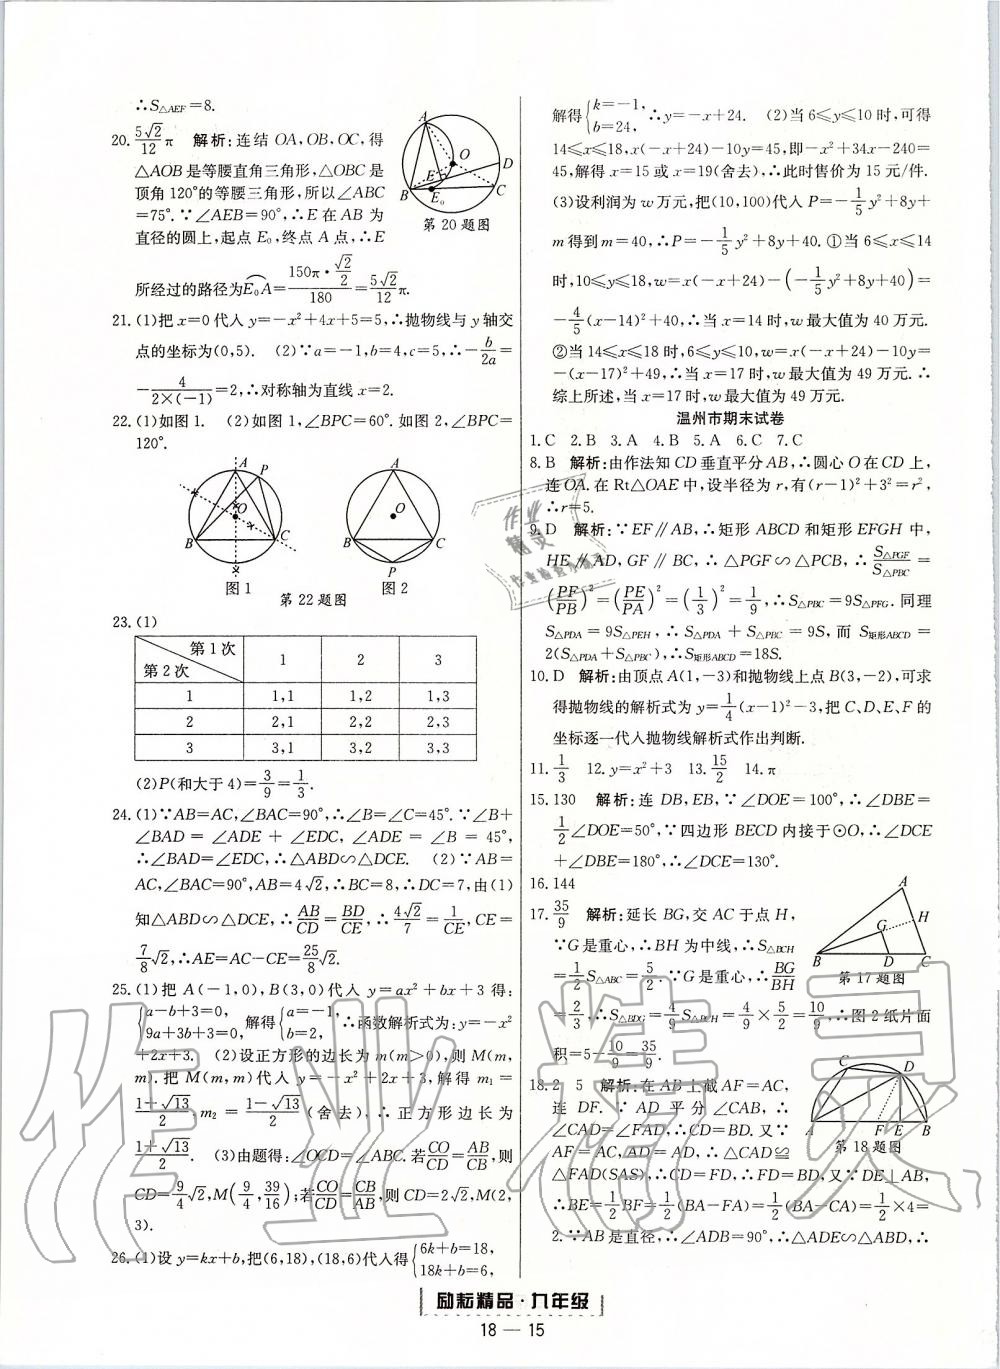 ∴S△AEF=8.
20. 5√2/12 π 解析:连结 OA,OB,OC,得
△AOB是等腰直角三角形,△OBC是
顶角120°的等腰三角形,所以∠ABC
=75°.∵∠AEB=90°,∴E 在 AB 为
直径的圆上,起点 E₀,终点 A 点,∴E
所经过的路径为E₀A=(150π·√2/2)/180=5√2/12 π.
A
O
D
B
E
E₀
C
第20题图
21. (1)把 x=0代入 y=-x²+4x+5=5,∴抛物线与 y 轴交
点的坐标为(0,5). (2)∵a=-1,b=4,c=5,∴-b/2a=
-4/(2×(-1))=2,∴对称轴为直线 x=2.
22. (1)如图 1. (2)如图 1,∠BPC=60°.如图 2,∠BPC=
120°.
A P
O
B C
图 1
A
O
B C
P
图 2
第 22 题图
23. (1)
第 1 次
第 2 次
1 2 3
1 1,1 1,2 1,3
2 2,1 2,2 2,3
3 3,1 3,2 3,3
(2)P(和大于 4)=3/9=1/3.
24. (1)∵AB=AC,∠BAC=90°,∴∠B=∠C=45°.∵∠B+
∠BAD = ∠ADE + ∠EDC, ∠ADE = ∠B = 45°,
∴∠BAD=∠EDC,∴△ABD∽△DCE. (2)∵AB=
AC,∠BAC=90°,AB=4√2,∴BC=8,∴DC=7,由(1)
知△ABD∽△DCE,∴AB/CD=BD/CE,∴4√2/7=1/CE,CE=
7/8 √2,∴AE=AC-CE=25/8 √2.
25. (1)把 A(-1,0),B(3,0)代入 y=ax²+bx+3 得:
{a-b+3=0, 9a+3b+3=0, 解得{a=-1, b=2, ∴函数解析式为:y=-x²
+2x+3. (2)设正方形的边长为 m(m>0),则 M(m,
m).把 M(m,m)代入 y=-x²+2x+3,解得 m₁=
(1+√13)/2,m₂=(1-√13)/2(舍去),∴正方形边长为
(1+√13)/2. (3)由题得:∠OCD=∠ABC.若CO/CD=AB/CB,则
CD=9/4 √2,M(9/4,39/16);若CO/CD=CB/AB,则 CD=2√2,M(2,
3).
26. (1)设 y=kx+b,把(6,18),(18,6)代入得{6k+b=18, 18k+b=6,
解得{k=-1, b=24, ∴y=-x+24. (2)当 6≤y≤10 时,可得
14≤x≤18,x(-x+24)-10y=45,即-x²+34x-240=
45,解得 x=15 或 x=19(舍去),∴此时售价为 15 元/件.
(3)设利润为 w 万元,把(10,100)代入 P=-1/5 y²+8y+
m 得到 m=40,∴P=-1/5 y²+8y+40.①当 6≤x≤14
时,10≤y≤18,w=x(-x+24)-(-1/5 y²+8y+40)=
-4/5(x-14)²+40,∴当 x=14 时,w 最大值为 40 万元.
②当 14≤x≤18 时,6≤y≤10,w=x(-x+24)-10y=
-(x-17)²+49,∴当 x=17 时,w 最大值为 49 万元.∴
综上所述,当 x=17 时,w 最大值为 49 万元.
温州市期末试卷
1. C 2. B 3. A 4. B 5. A 6. C 7. C
8. B 解析:由作法知 CD 垂直平分 AB,∴圆心 O 在 CD 上,
连 OA.在 Rt△OAE 中,设半径为 r,有(r-1)²+3²=r²,
∴r=5.
9. D 解析:∵EF∥AB,∴矩形 ABCD 和矩形 EFGH 中,
HE∥AD,GF∥BC,∴△PGF∽△PCB,∴S△PGF/S△PBC=
(PF/PB)²=(PE/PA)²=(1/3)²=1/9,∴S△PBC=9S△PFG.同理
S△PDA=9S△PEH,∴S△PDA+S△PBC=9S,而 S矩形ABCD=
2(S△PDA+S△PBC),∴S矩形ABCD=18S.
10. D 解析:由顶点 A(1,-3)和抛物线上点 B(3,-2),可求
得抛物线的解析式为 y=1/4(x-1)²-3,把 C、D、E、F 的
坐标逐一代入抛物线解析式作出判断.
11. 1/3 12. y=x²+3 13. 15/2 14. π
15. 130 解析:连 DB,EB,∵∠DOE=100°,∴∠DBE=
1/2∠DOE=50°,∵四边形 BECD 内接于⊙O,∴∠DCE
+∠DBE=180°,∴∠DCE=130°.
16. 144
17. 35/9 解析:延长 BG,交 AC 于点 H,
∵G 是重心,∴BH 为中线,∴S△BCH
=1/2 S△ABC=5/2.∵G 是重心,∴BG/BH
=2/3,∴S△BDG=4/9 S△BCH=4/9×5/2=10/9,∴图 2 纸片面
积=5-10/9=35/9.
A
H
G
B D C
第 17 题图
18. 2 5 解析:在 AB 上截 AF=AC,
连 DF.∵AD 平分∠CAB,∴
∠CAD=∠FAD,∴CD=BD.又∵
AF=AC,AD=AD,∴△CAD≌
△FAD(SAS),∴CD=FD,∴FD=BD.又∵DE⊥AB,
∴BE=1/2 BF=1/2(BA-FA)=1/2(BA-CA)=1/2×4=
2.∵AB 是直径,∴∠ADB=90°,∴△ADE∽△ABD,∴
C D
A F E B
第 18 题图
励耘精品·九年级
18 — 15
作业精灵
作业
精灵